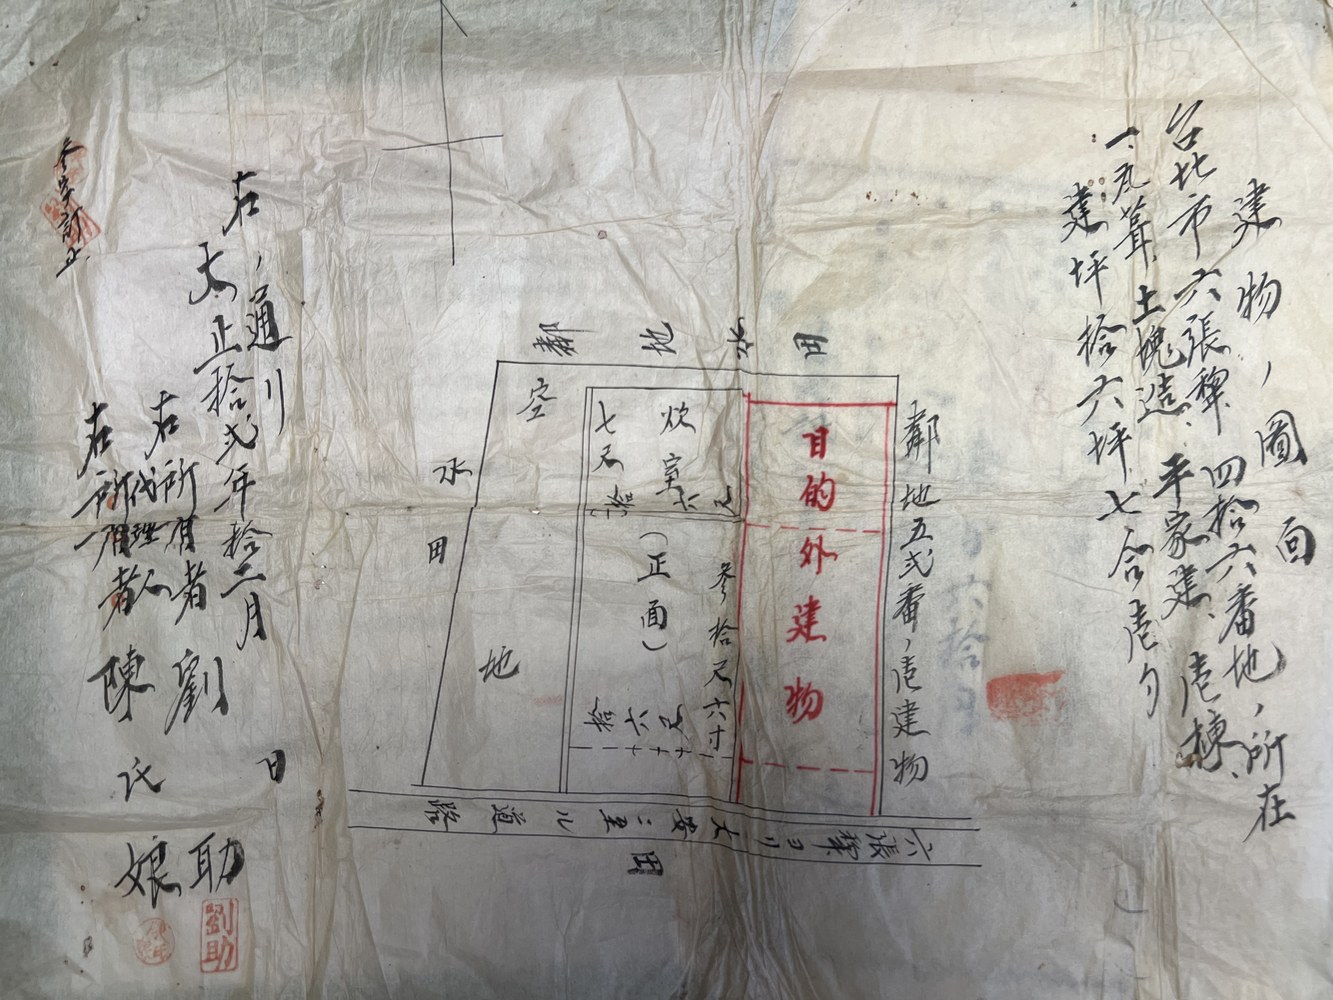 建物ノ圖面
台北市六張犂四拾六番地ノ所在
一、瓦葺土塊造平家建、壱棟
建坪拾六坪七合壱勺
鄰地五弍番ノ壱建物
田水地鄰
目的外建物
炊室
六尺
七尺
(正面)
参拾尺六寸
拾六尺
空地
水田
六張犂ヨリ大安ニ至ル道路
田
右ノ通リ
大正拾弍年拾二月 日
右所有者 劉助
劉助
右代理人
所有者 陳氏娘
参字訂正